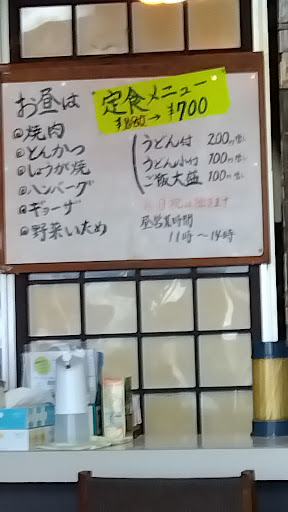 お昼は
定食メニュー
¥880→¥700
焼肉
とんかつ
しょうが焼
ハンバーグ
ギョーザ
野菜いため
うどん付 200円増
うどん小付 100円増
ご飯大盛 100円増
昼営業時間
11時〜14時